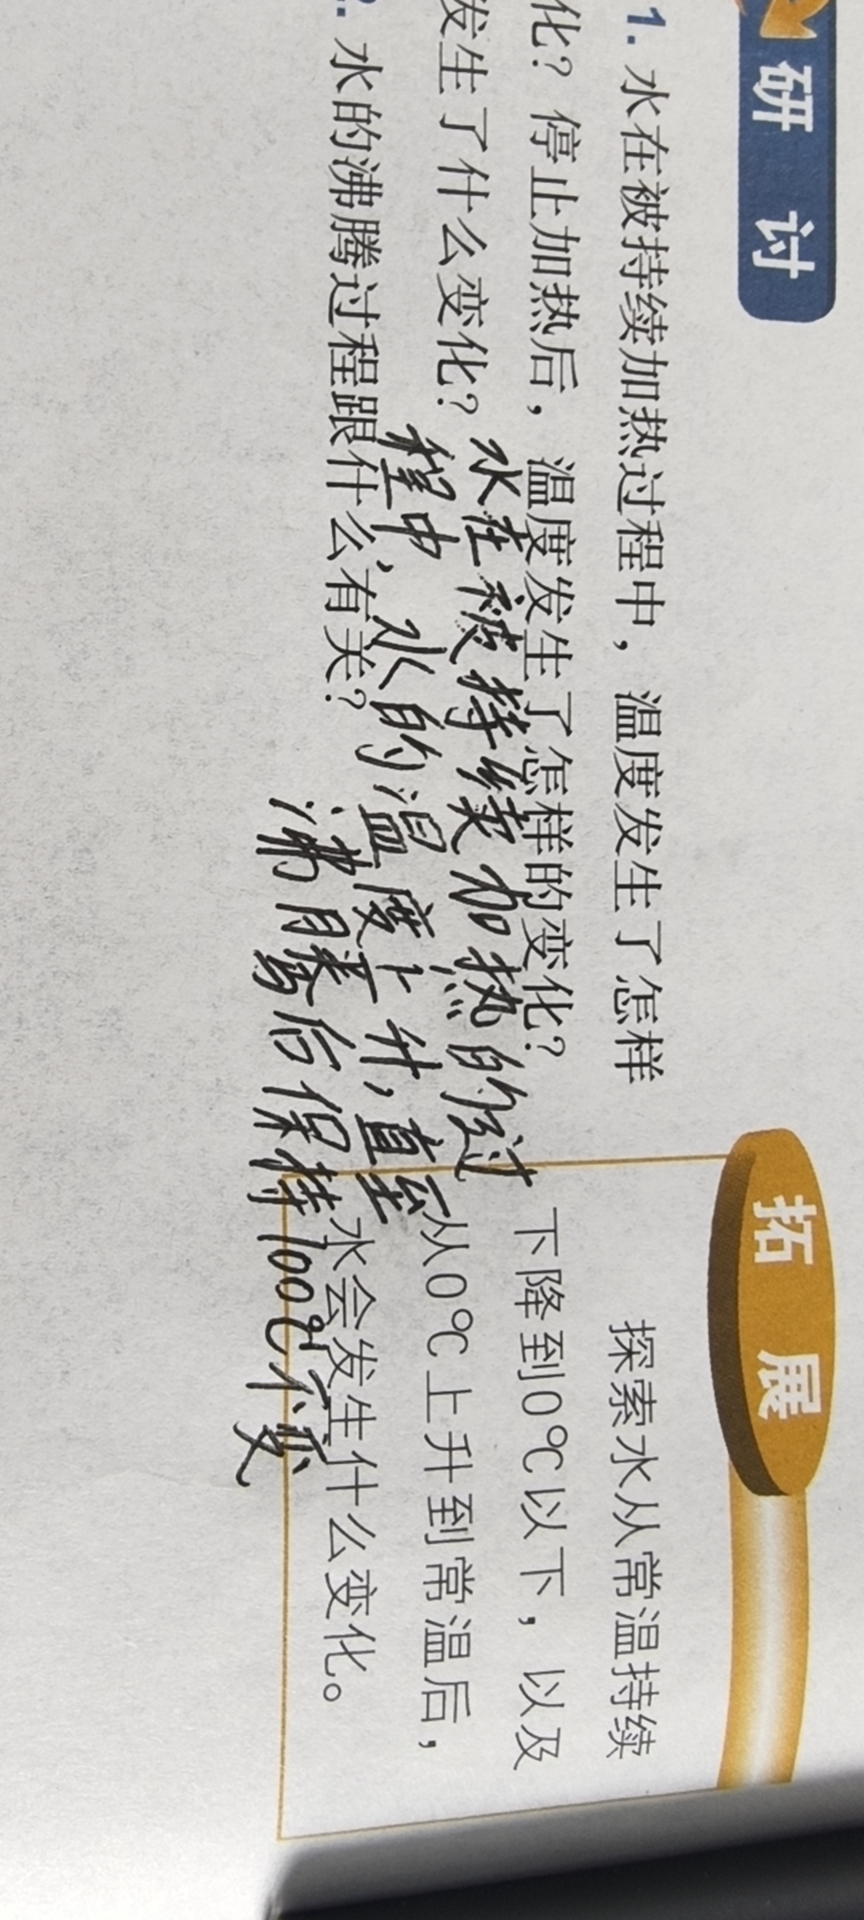 研讨
1. 水在被持续加热过程中，温度发生了怎样
化？停止加热后，温度发生了怎样的变化？
发生了什么变化？
2. 水的沸腾过程跟什么有关？
水在被持续加热的过
程中，水的温度上升，直至
沸腾后保持100℃不变
拓展
探索水从常温持续
下降到0℃以下，以及
从0℃上升到常温后，
水会发生什么变化。